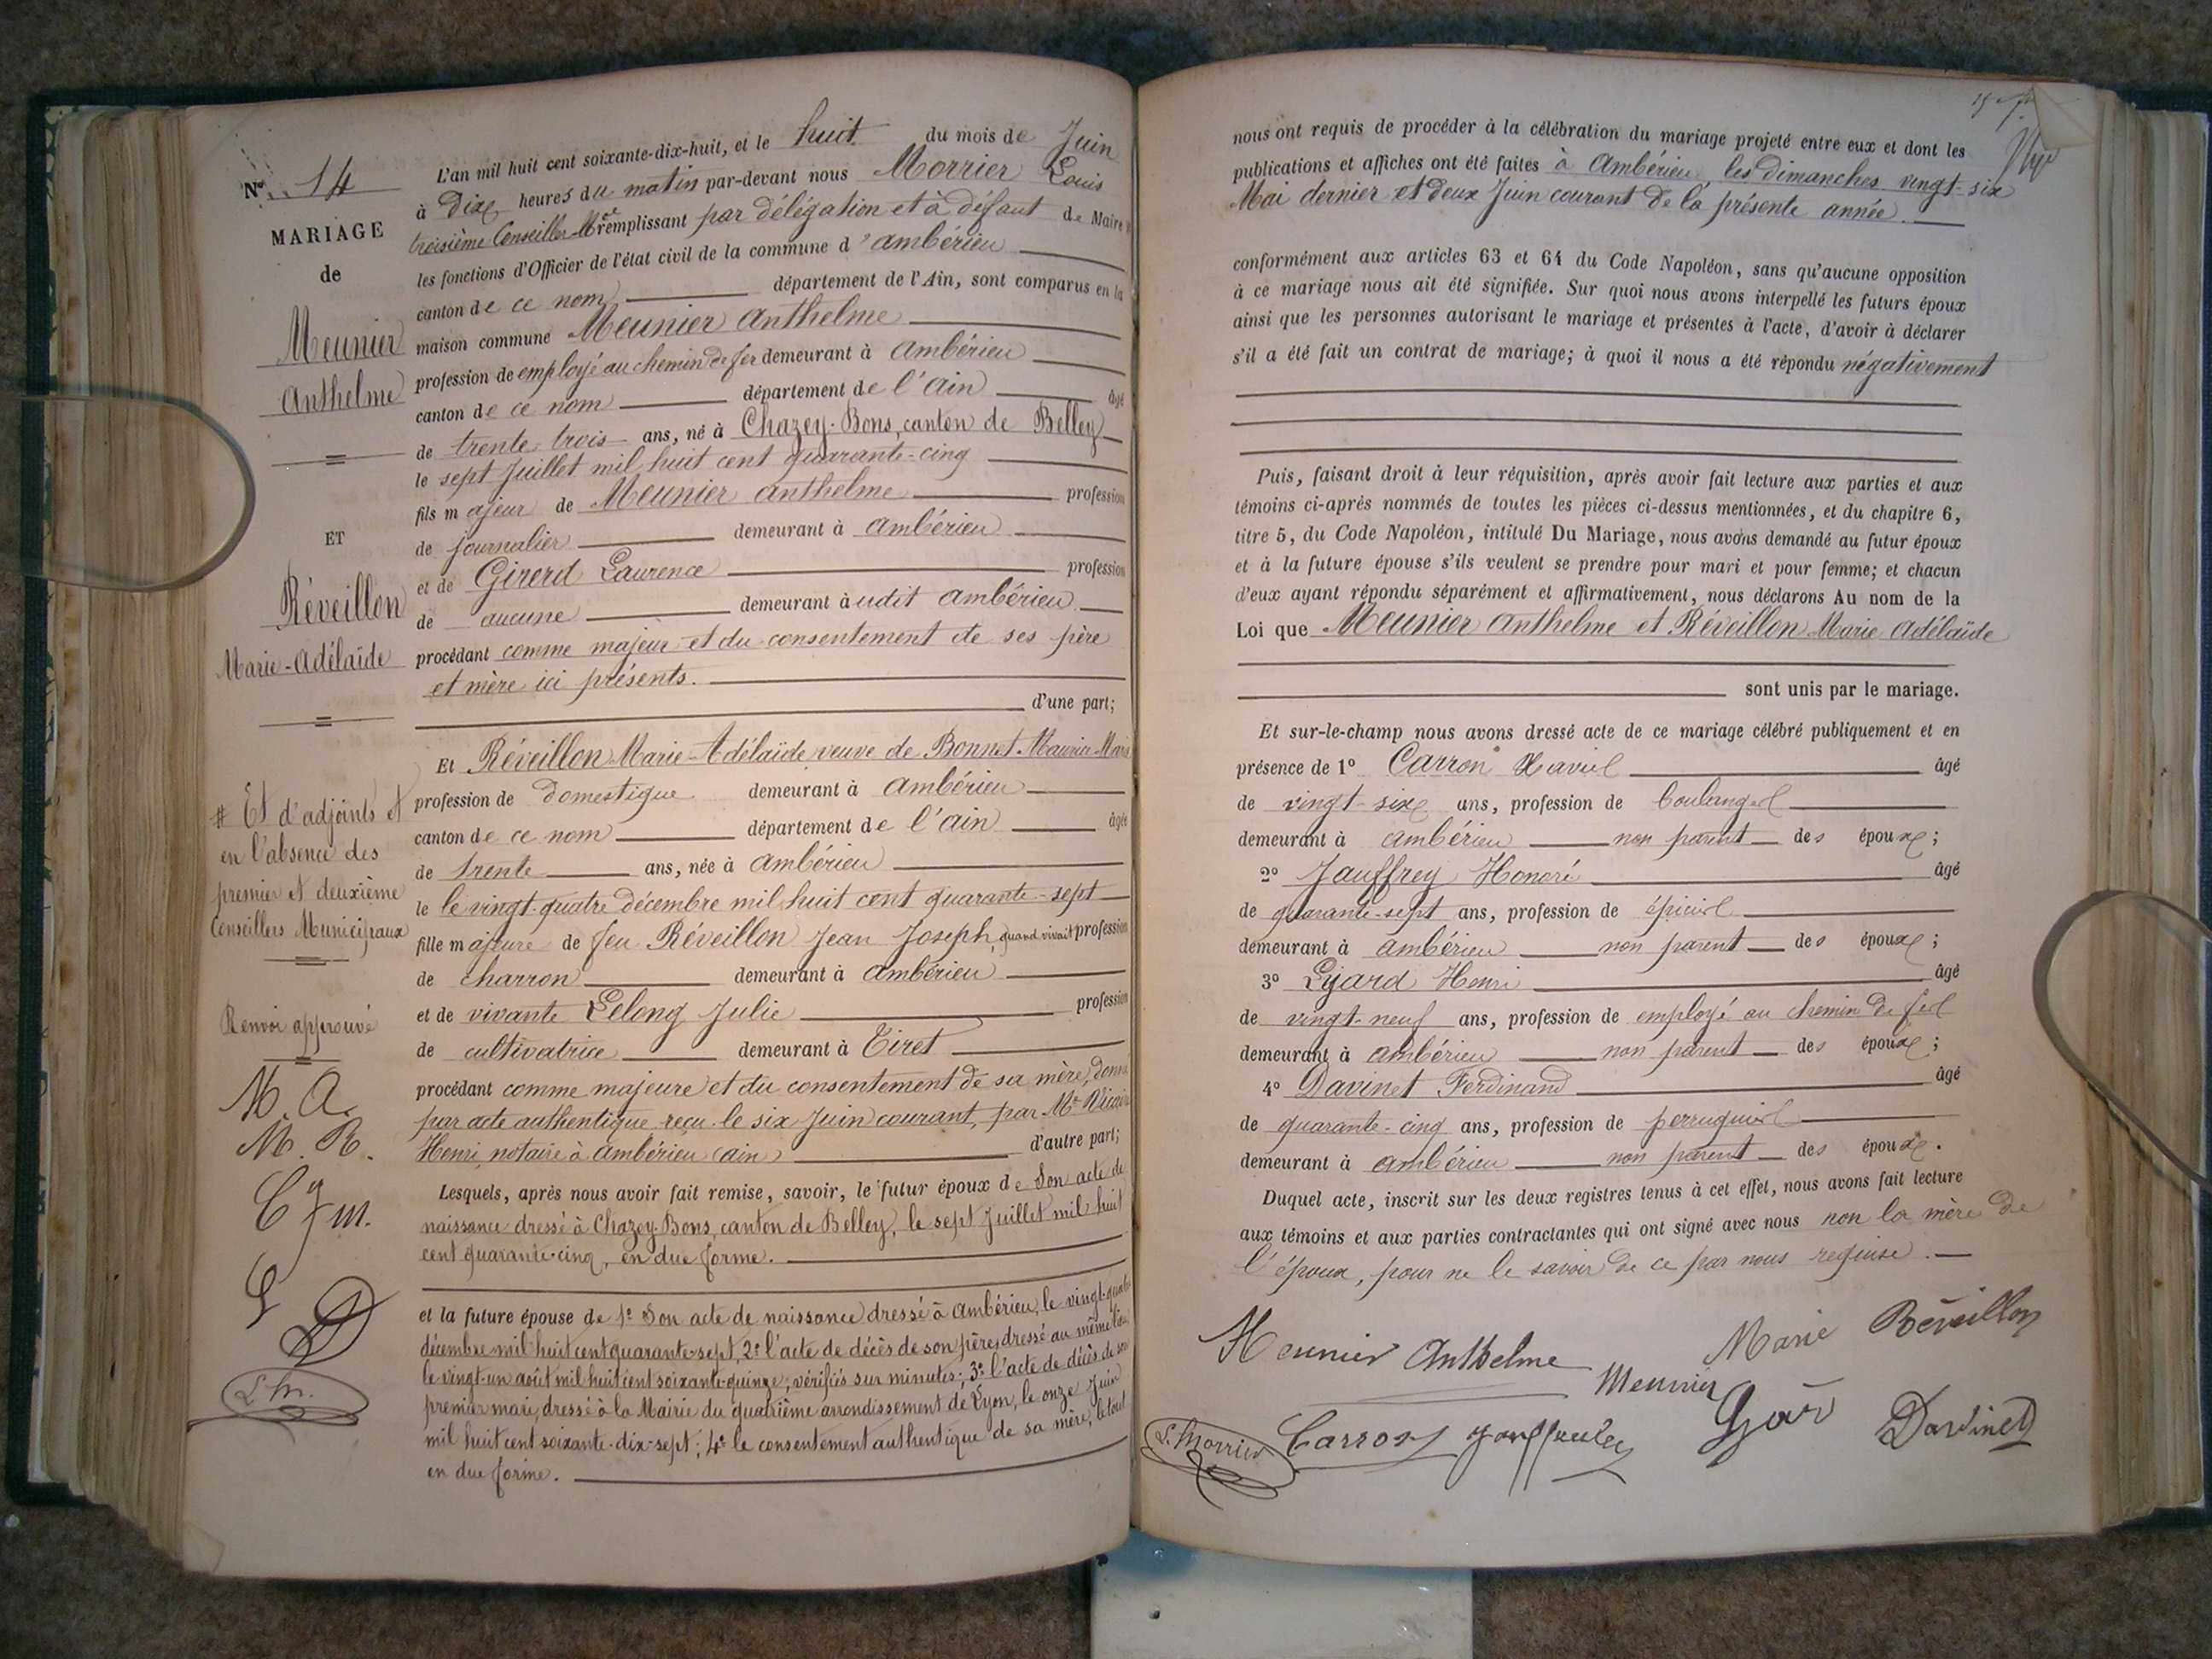 N° 14
MARIAGE
de
Meunier
Anthelme
ET
Réveillon
Marie-Adélaïde
# Et d'adjoints et
en l'absence des
premier et deuxième
Conseillers Municipaux
Renvoi approuvé
M. A.
M. R.
C J m.
L
D
L. M.
L'an mil huit cent soixante-dix-huit, et le huit du mois de Juin
à Dix heures du matin par-devant nous Morrier Louis
troisième Conseiller Mal remplissant par délégation et à défaut de Maire #
les fonctions d'Officier de l'état civil de la commune d'ambérieu
canton de ce nom département de l'Ain, sont comparus en la
maison commune Meunier Anthelme
profession de employé au chemin de fer demeurant à Ambérieu
canton de ce nom département de l'ain âgé
de trente-trois ans, né à Chazey-Bons, canton de Belley
le sept Juillet mil huit cent quarante-cinq
fils majeur de Meunier Anthelme profession
de journalier demeurant à Ambérieu
et de Girerd Laurence profession
de aucune demeurant àudit ambérieu
procédant comme majeur et du consentement de ses père
et mère ici présents.
d'une part;
Et Réveillon Marie-Adélaïde veuve de Bonnet Maurice-Marie
profession de domestique demeurant à Ambérieu
canton de ce nom département de l'ain âgée
de trente ans, née à Ambérieu
le le vingt-quatre décembre mil huit cent quarante-sept
fille majeure de feu Réveillon Jean Joseph, quand vivait profession
de charron demeurant à Ambérieu
et de vivante Lelong Julie profession
de cultivatrice demeurant à Tiret
procédant comme majeure et du consentement de sa mère, donné
par acte authentique reçu le six Juin courant, par Me
Henri, notaire à Ambérieu (ain) d'autre part;
Lesquels, après nous avoir fait remise, savoir, le futur époux de Son acte de
naissance dressé à Chazey-Bons, canton de Belley, le sept Juillet mil huit
cent quarante-cinq, en due forme.
et la future épouse de 1° Son acte de naissance dressé à Ambérieu, le vingt-quatre
décembre mil huit cent quarante-sept, 2° l'acte de décès de son père, dressé au même lieu
le vingt-un août mil huit cent soixante-quinze; vérifiés sur minutes; 3° l'acte de décès de son
premier mari, dressé à la Mairie du quatrième arrondissement de Lyon, le onze Juin
mil huit cent soixante-dix-sept; 4° le consentement authentique de sa mère, le tout
en due forme.
nous ont requis de procéder à la célébration du mariage projeté entre eux et dont les
publications et affiches ont été faites à Ambérieu, les dimanches vingt-six
Mai dernier et deux Juin courant de la présente année.
conformément aux articles 63 et 64 du Code Napoléon, sans qu'aucune opposition
à ce mariage nous ait été signifiée. Sur quoi nous avons interpellé les futurs époux
ainsi que les personnes autorisant le mariage et présentes à l'acte, d'avoir à déclarer
s'il a été fait un contrat de mariage; à quoi il nous a été répondu négativement
Puis, faisant droit à leur réquisition, après avoir fait lecture aux parties et aux
témoins ci-après nommés de toutes les pièces ci-dessus mentionnées, et du chapitre 6,
titre 5, du Code Napoléon, intitulé Du Mariage, nous avons demandé au futur époux
et à la future épouse s'ils veulent se prendre pour mari et pour femme; et chacun
d'eux ayant répondu séparément et affirmativement, nous déclarons Au nom de la
Loi que Meunier Anthelme et Réveillon Marie Adélaïde
sont unis par le mariage.
Et sur-le-champ nous avons dressé acte de ce mariage célébré publiquement et en
présence de 1° Carron Xavier âgé
de vingt-six ans, profession de boulanger
demeurant à ambérieu non parent des époux;
2° Jauffrey Honoré âgé
de quarante-sept ans, profession de épicier
demeurant à ambérieu non parent des époux;
3° Lyard Henri âgé
de vingt-neuf ans, profession de employé au chemin de fer
demeurant à ambérieu non parent des époux;
4° Davinet Ferdinand âgé
de quarante-cinq ans, profession de perruquier
demeurant à ambérieu non parent des époux.
Duquel acte, inscrit sur les deux registres tenus à cet effet, nous avons fait lecture
aux témoins et aux parties contractantes qui ont signé avec nous non la mère de
l'époux, pour ne le savoir de ce par nous requise.
Meunier Anthelme Marie Réveillon
Meunier
L. Morrier Carron Davinet